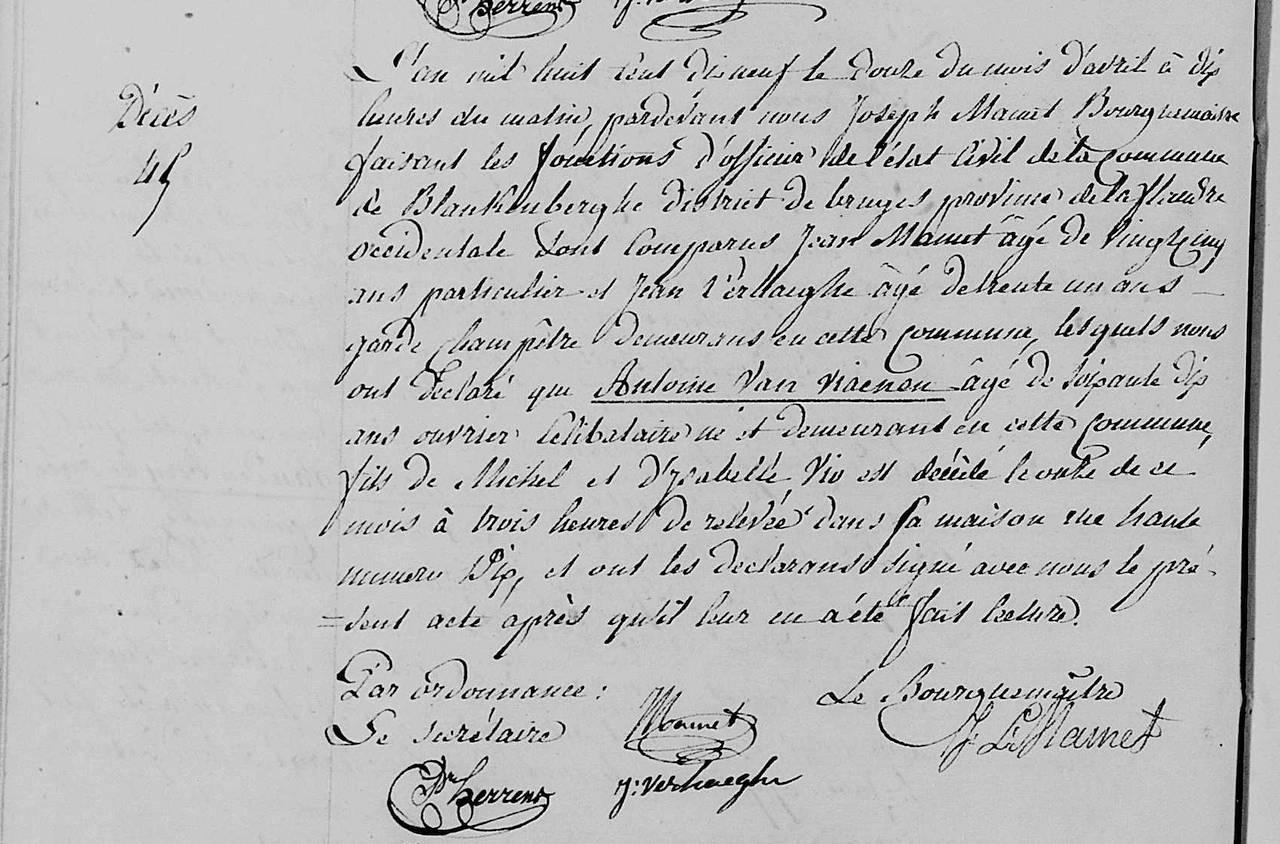 Dr herrent
Décès
45
L'an mil huit cent dix neuf le douze du mois d'avril à dix
heures du matin, pardevant nous Joseph Mamet Bourguemaitre
faisant les fonctions d'officier de l'état Civil de la Commune
de Blankenberghe district de bruges province de la flandre
occidentale sont Comparus Jean Mamet âgé de vingt cinq
ans particulier et Jean Verhaeghe âgé de trente un ans
garde Champêtre demeurans en cette commune, lesquels nous
ont déclaré que Antoine Van Viaenen âgé de soixante dix
ans ouvrier Célibataire né et demeurant en cette Commune,
fils de Michel et d'Isabelle Vio est décédé le onze de ce
mois à trois heures de relevée dans sa maison rue haute
numero Dix, et ont les declarans signé avec nous le pré-
=sent acte après qu'il leur en a été fait lecture.
Par ordonnance : Le Bourguemaître
Le secrétaire Mamet J. L. Mamet
Dr herrent J: Verhaeghe